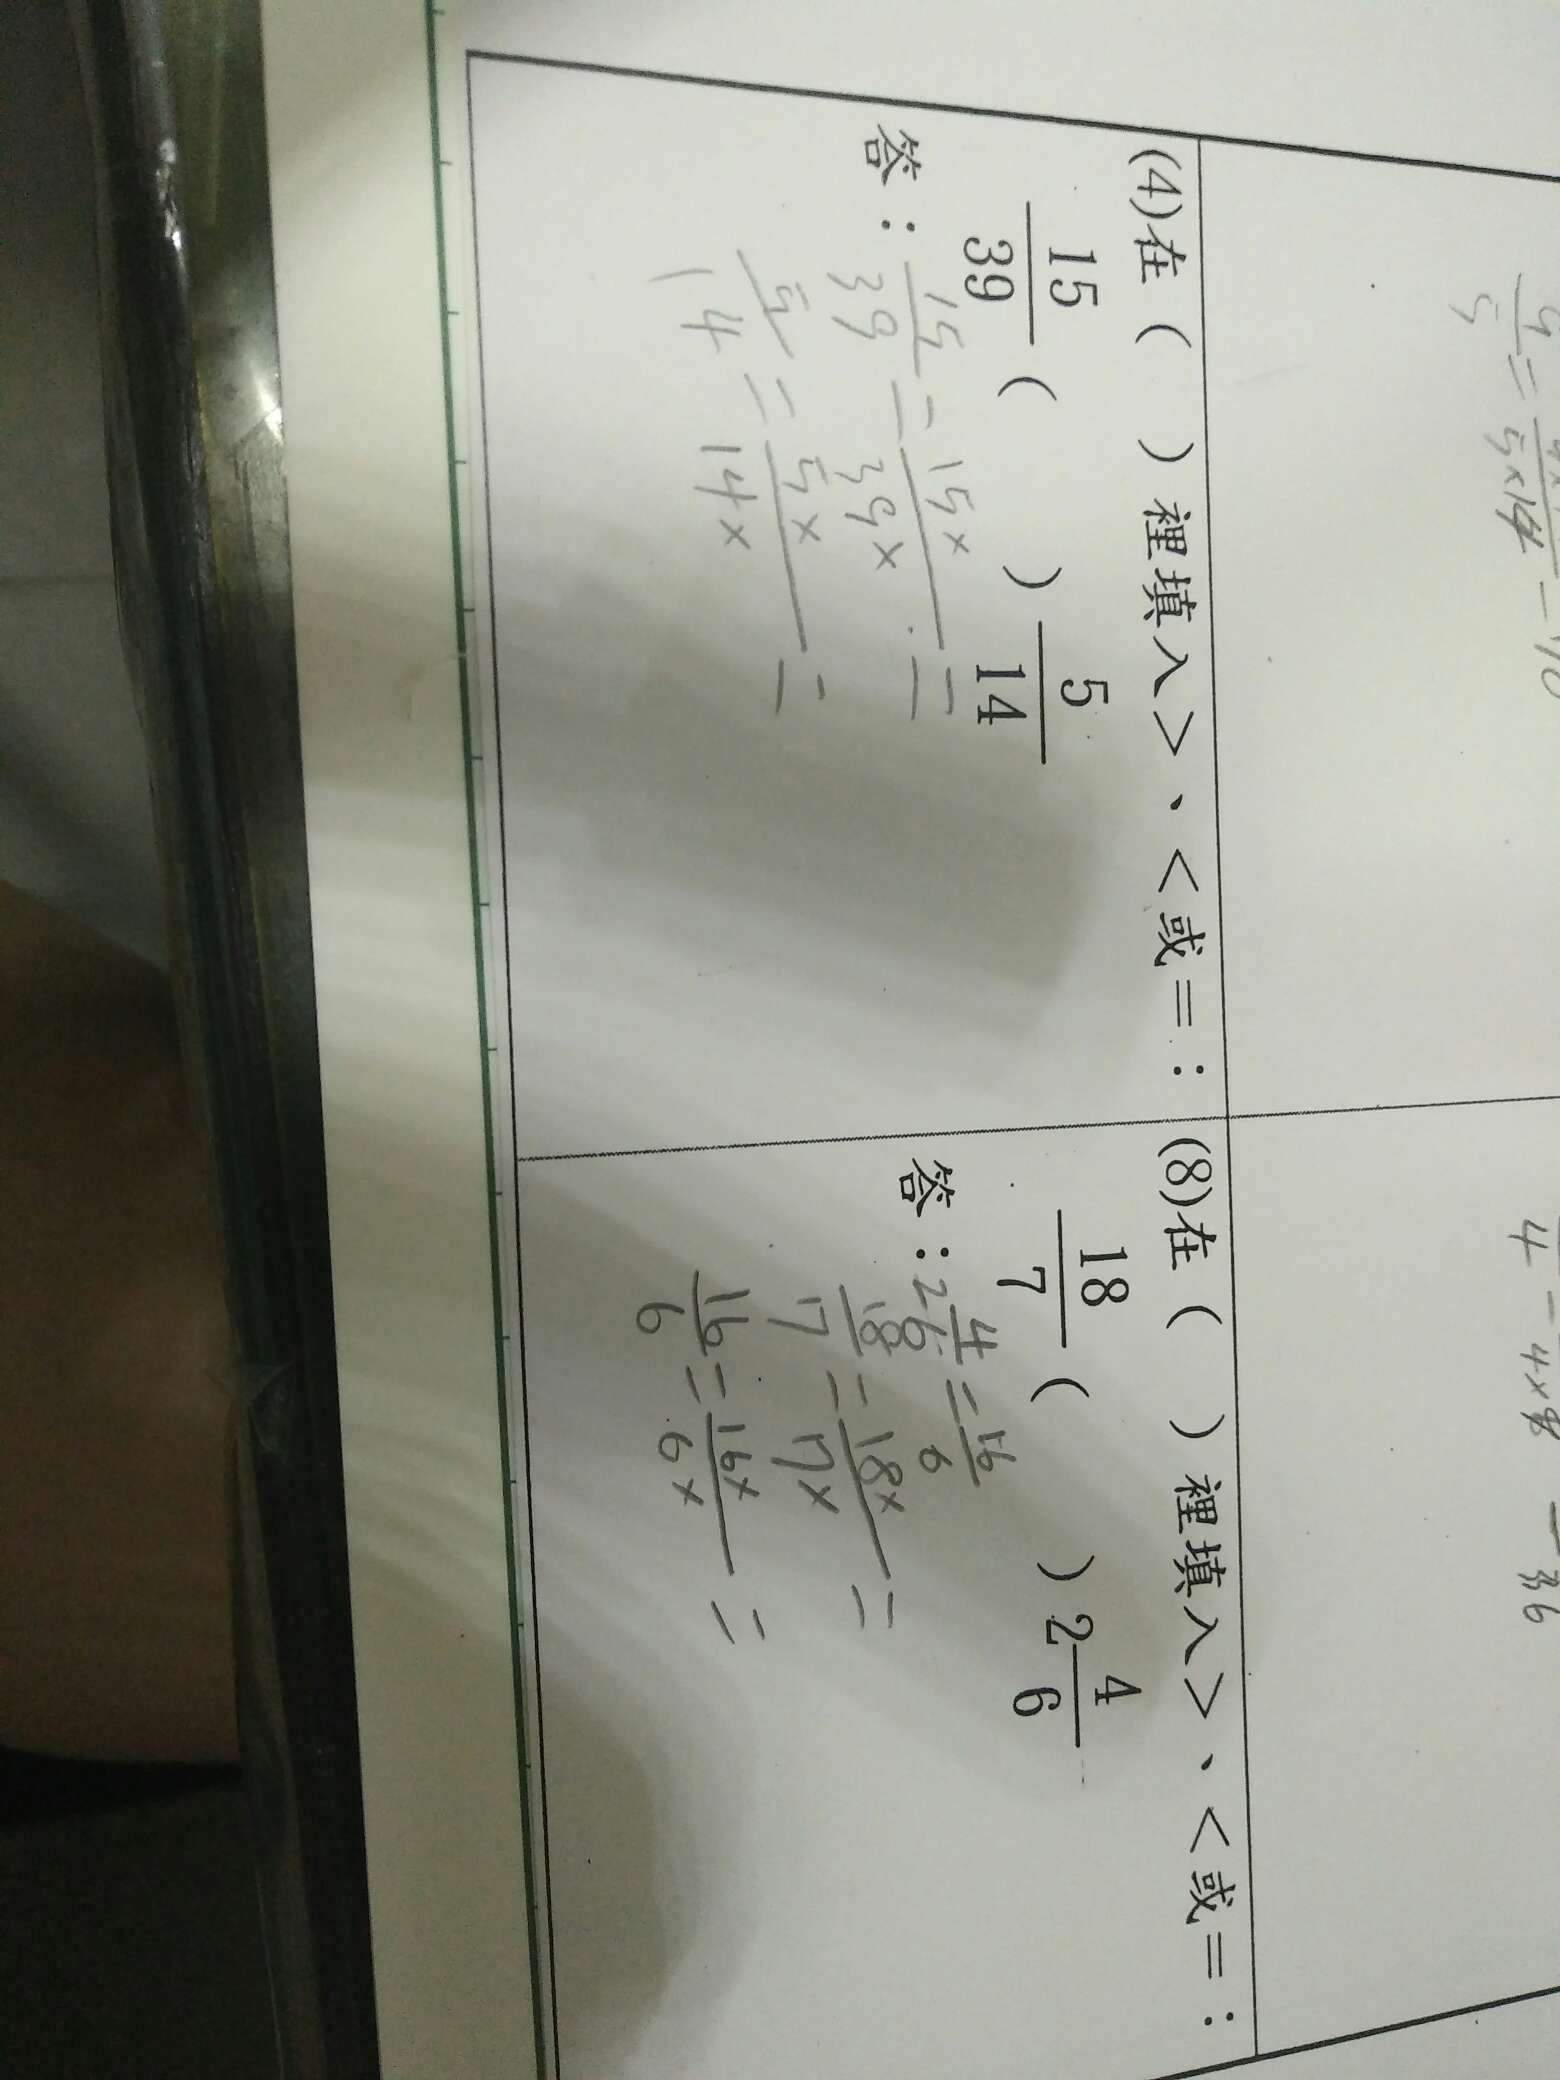 4/5 = 4x/5x14 = 70
4 = 4x9 = 36
(4)在( )裡填入>、<或=:
15/39 ( ) 5/14
答:15/39 = 15x/39x =
5/14 = 5x/14x =
(8)在( )裡填入>、<或=:
18/7 ( ) 2 4/6
答:2 4/6 = 16/6
18/17 = 18x/17x =
16/6 = 16x/6x =